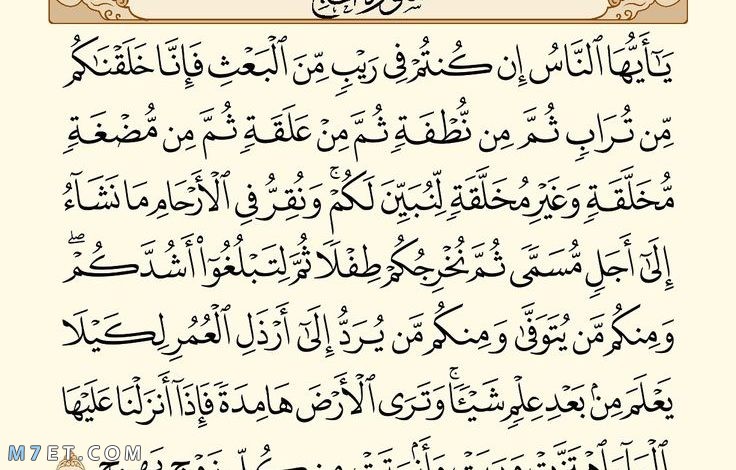 سورة الحج
يَـٰٓأَيُّهَا ٱلنَّاسُ إِن كُنتُمْ فِى رَيْبٍ مِّنَ ٱلْبَعْثِ فَإِنَّا خَلَقْنَـٰكُم
مِّن تُرَابٍ ثُمَّ مِن نُّطْفَةٍ ثُمَّ مِنْ عَلَقَةٍ ثُمَّ مِن مُّضْغَةٍ
مُّخَلَّقَةٍ وَغَيْرِ مُخَلَّقَةٍ لِّنُبَيِّنَ لَكُمْ ۚ وَنُقِرُّ فِى ٱلْأَرْحَامِ مَا نَشَآءُ
إِلَىٰٓ أَجَلٍ مُّسَمًّى ثُمَّ نُخْرِجُكُمْ طِفْلًا ثُمَّ لِتَبْلُغُوٓا۟ أَشُدَّكُمْ ۖ
وَمِنكُم مَّن يُتَوَفَّىٰ وَمِنكُم مَّن يُرَدُّ إِلَىٰٓ أَرْذَلِ ٱلْعُمُرِ لِكَيْلَا
يَعْلَمَ مِنۢ بَعْدِ عِلْمٍ شَيْـًٔا ۚ وَتَرَى ٱلْأَرْضَ هَامِدَةً فَإِذَآ أَنزَلْنَا عَلَيْهَا
ٱلْمَآءَ ٱهْتَزَّتْ وَرَبَتْ وَأَنۢبَتَتْ مِن كُلِّ زَوْجٍۭ بَهِيجٍ
M7ET.COM